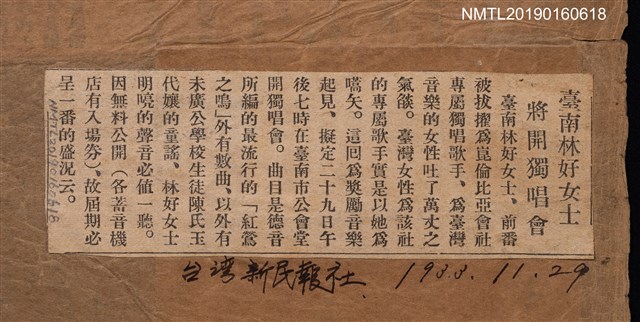 NMTL20190160618
臺南林好女士
將開獨唱會
臺南林好女士、前番
被拔擢為崑倫比亞會社
專屬獨唱歌手、為臺灣
音樂的女性吐了萬丈之
氣燄。臺灣女性為該社
的專屬歌手實是以她為
嚆矢。這回為獎勵音樂
起見、擬定二十九日午
後七時在臺南市公會堂
開獨唱會。曲目是德音
所編的最流行的「紅鶯
之鳴」外有數曲、以外有
末廣公學校生徒陳氏玉
代孃的童謠、林好女士
明喨的聲音必值一聽。
因無料公開（各蓄音機
店有入場券）、故屆期必
呈一番的盛況云。
NMTL20190160618
台湾新民報社 1933.11.29